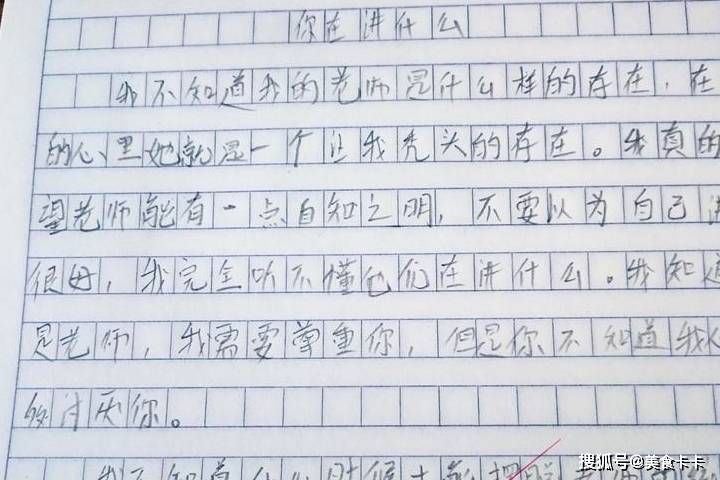 你在讲什么
我不知道我的老师是什么样的存在,在
的心里她就是一个让我秃头的存在。我真的
望老师能有一点自知之明,不要以为自己
很好,我完全听不懂他们在讲什么。我知道
是老师,我需要尊重你,但是你不知道我
讨厌你。
我不知道什么时候才能把
搜狐号@美食卡卡